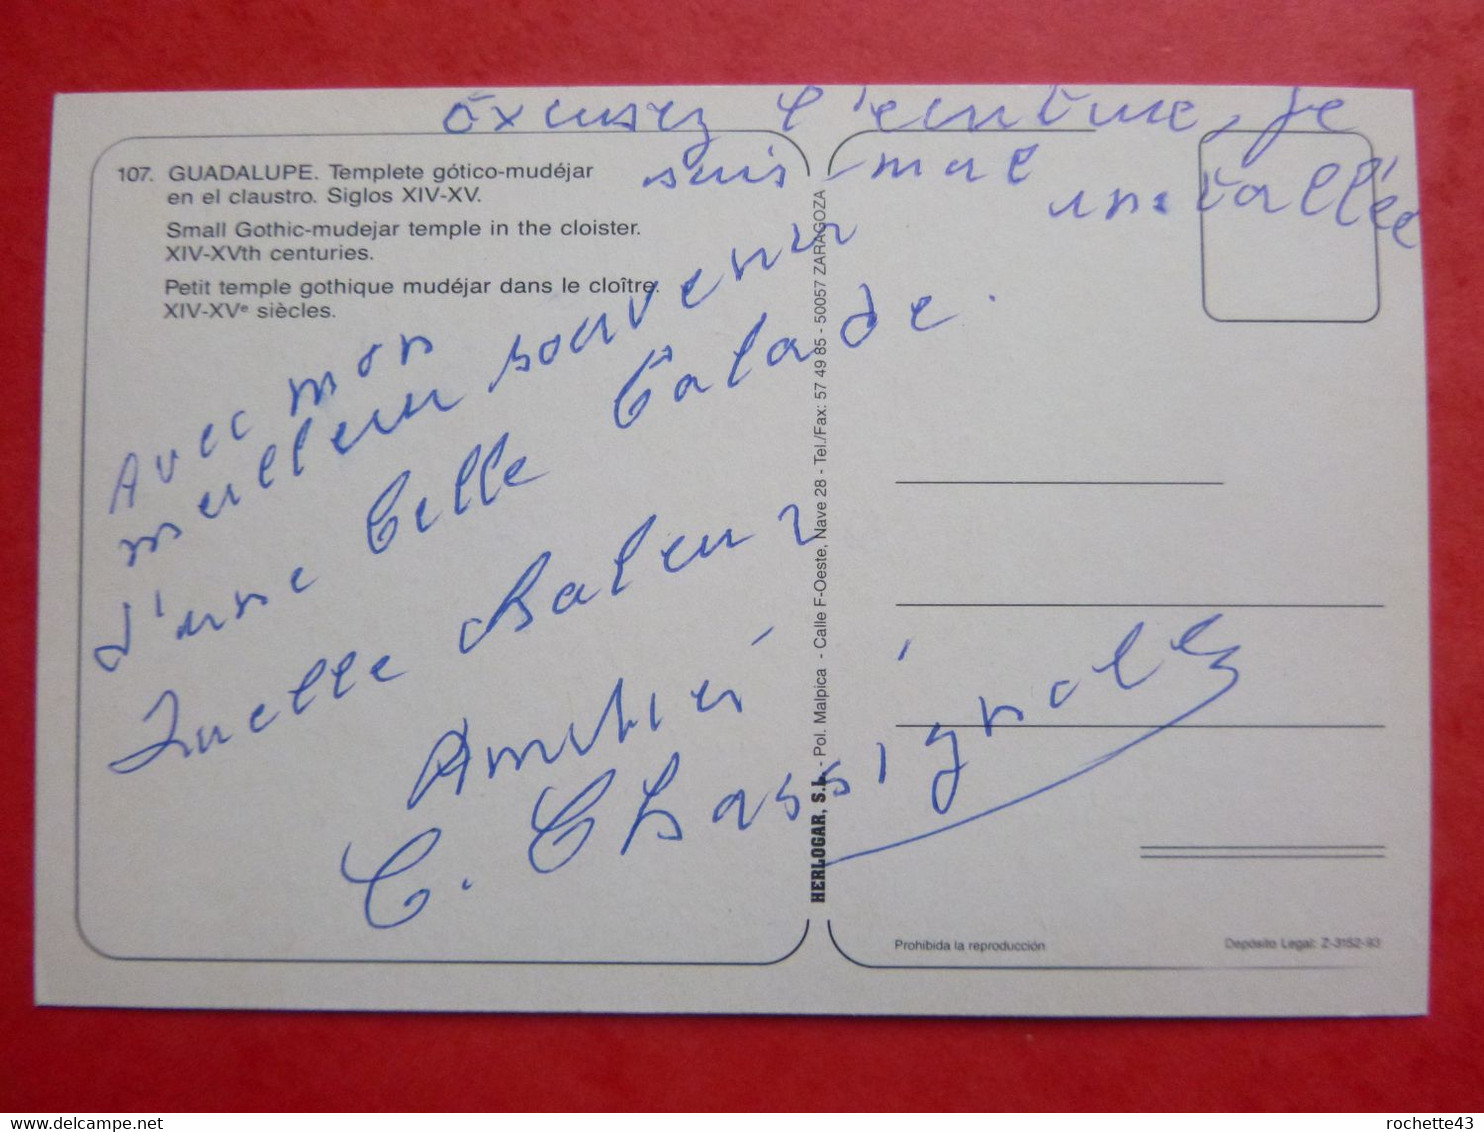 Excusez l'écriture, je
suis mal
installée
107. GUADALUPE. Templete gótico-mudéjar
en el claustro. Siglos XIV-XV.
Small Gothic-mudejar temple in the cloister.
XIV-XVth centuries.
Petit temple gothique mudéjar dans le cloître.
XIV-XVe siècles.
Avec mon
meilleur souvenir
d'une belle balade.
Quelle chaleur
Amitiés
C. Chassignole
HERLOGAR, S.L. - Pol. Malpica - Calle F-Oeste, Nave 28 - Tel./Fax: 57 49 85 - 50057 ZARAGOZA
Prohibida la reproducción
Depósito Legal: Z-3152-93
delcampe.net
rochette43